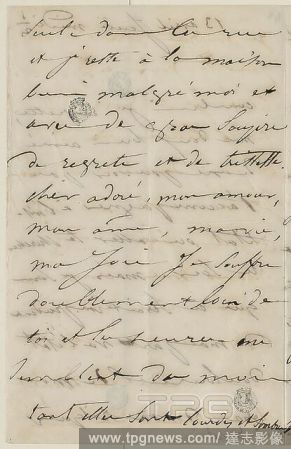 seule dans la rue
et je reste à la maison
bien malgré moi et
avec de gros soupirs
de regrets et de tristesse
cher adoré, mon amour,
mon âme, ma vie,
ma joie Je souffre
doublement loin de
toi et les heures me
semblent
tant elles sont lourdes et sombres
www.tpgnews.com / 達志影像